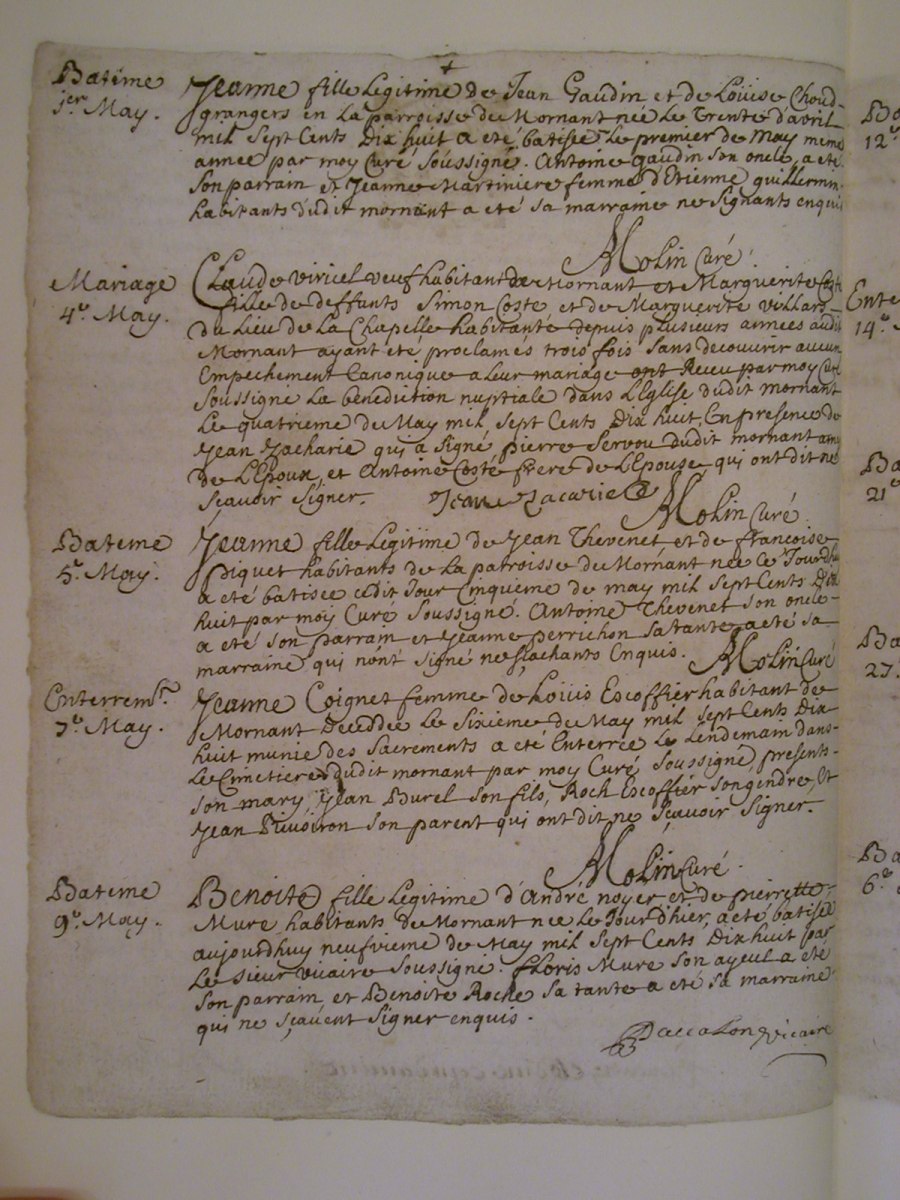 Batême
1er May.
Jeanne fille Legitime de Jean Gaudin et de Loüise Choud-
grangers en La parroisse de Mornant née Le trente d'avril
mil sept Cents Dix huit a eté batisée Le premier de May meme
année par moy Curé soussigné. Antoine gaudin son oncle, a eté
son parrain et Jeanne Martiniere femme d'Etienne guillermin
habitants dudit mornant a eté sa marraine ne signants enquis
Molin Curé
Mariage
4e. May.
Claude viricel veuf habitant de Mornant et Marguerite Coste
fille de deffunts Simon Coste et de Marguerite villard
du Lieu de La Chapelle habitante depuis plusieurs années audit
Mornant ayant eté proclamés trois fois sans decouvrir aucun
Empechement Canonique a Leur mariage ont Receu par moy Curé
soussigné La benediction nuptiale dans L'Eglise dudit mornant
Le quatrieme de May mil sept Cents Dix huit, En presence de
Jean Zacharie qui a signé, pierre Servou dudit mornant amy
de L'Epoux, et Antoine Coste frere de L'Epouse qui ont dit ne
sçavoir signer. Jean Zacarie Molin Curé
Batême
5e. May.
Jeanne fille Legitime de Jean Thevenet et de francoise
piguet habitants de La parroisse de Mornant née Le Jourd'huy
a eté batisée cedit Jour Cinquieme de may mil sept Cents Dix
huit par moy Curé soussigné. Antoine Thevenet son oncle
a eté son parrain et Jeanne perrichon sa tante a eté sa
marraine qui n'ont signé ne sçachants Enquis. Molin Curé
Enterremt.
7e May.
Jeanne Coignet femme de Loüis Escoffier habitant de
Mornant Decedée Le sixieme de May mil sept Cents Dix
huit munie des sacrements a eté Enterrée Le Lendemain dans
Le Cimetiere dudit mornant par moy Curé soussigné, presents
son mary, Jean Burel son fils, Roch Escoffier son gendre, et
Jean son parent qui ont dit ne sçavoir signer.
Molin Curé
Batême
9e. May.
Benoite fille Legitime d'André noyer et de pierrette
Mure habitants de Mornant née Le Jour d'hier, a eté batisée
aujourdhuy neufvieme de May mil sept Cents Dix huit par
Le sieur vicaire soussigné. floris Mure son ayeul a eté
son parrain, et Benoite Roche sa tante a eté sa marraine
qui ne sçavent signer enquis.
Baccalon vicaire
12e
14e
21e
27
6e